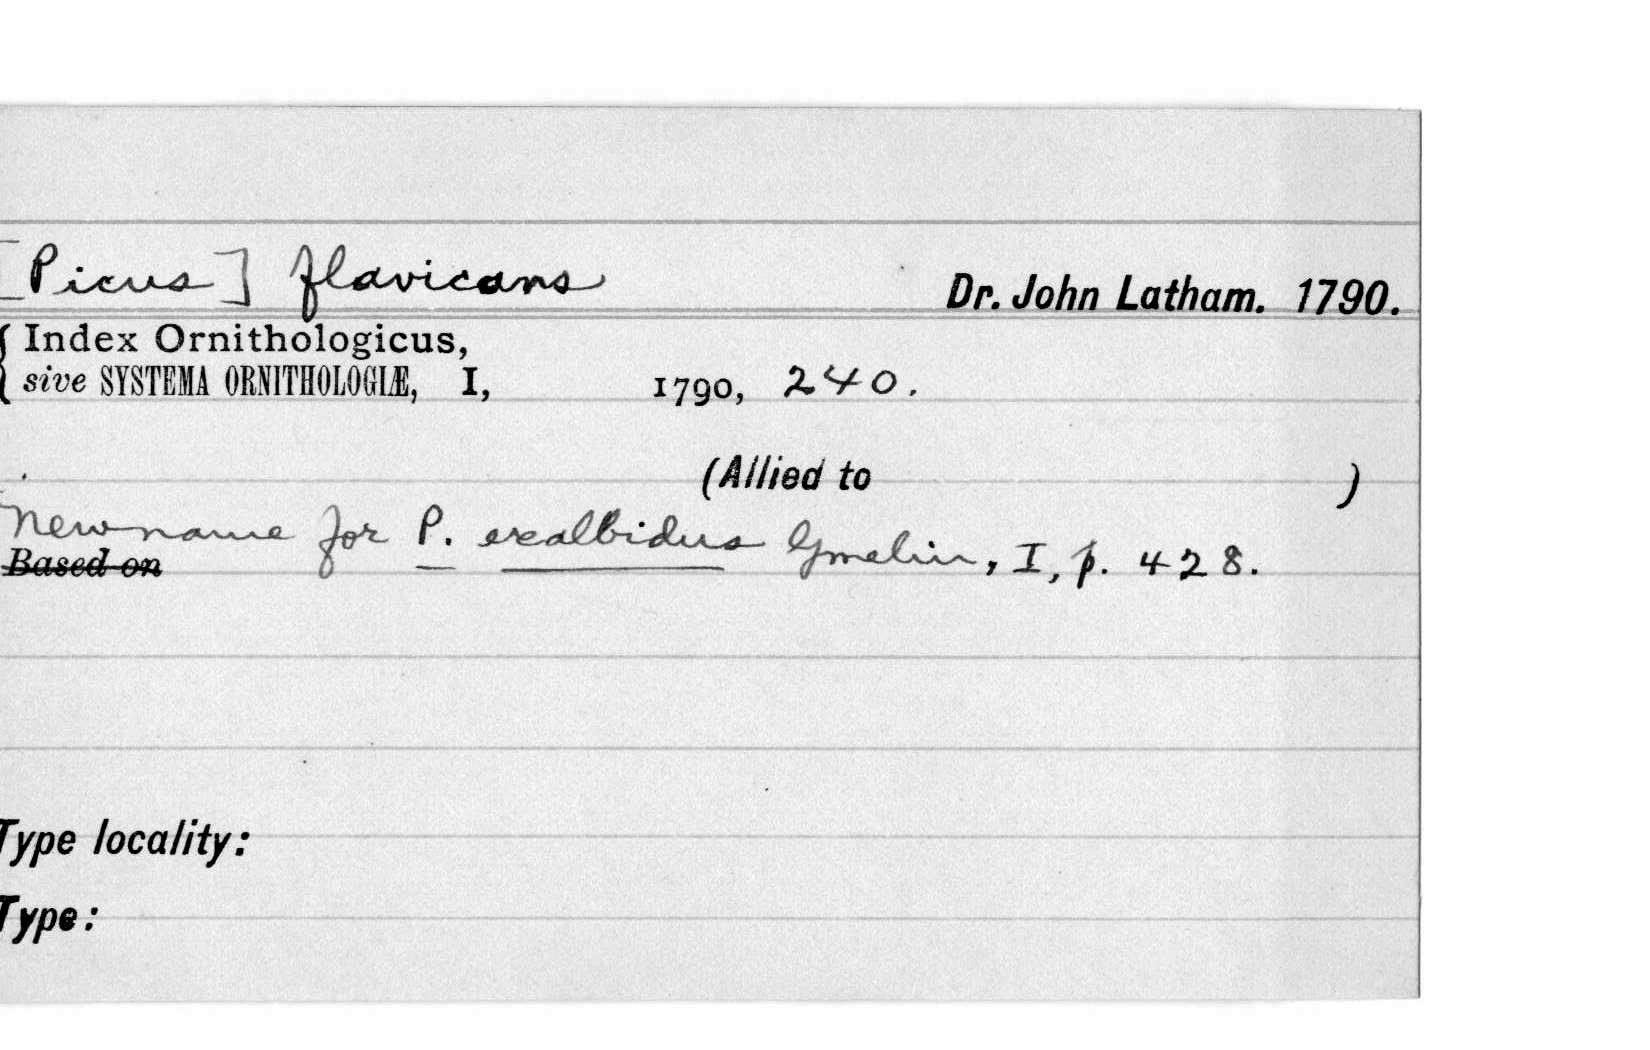 [Picus] flavicans
Dr. John Latham. 1790.
Index Ornithologicus,
sive SYSTEMA ORNITHOLOGIÆ, I, 1790, 240.
(Allied to )
New name for P. exalbidus Gmelin, I, p. 428.
Based on
Type locality:
Type: